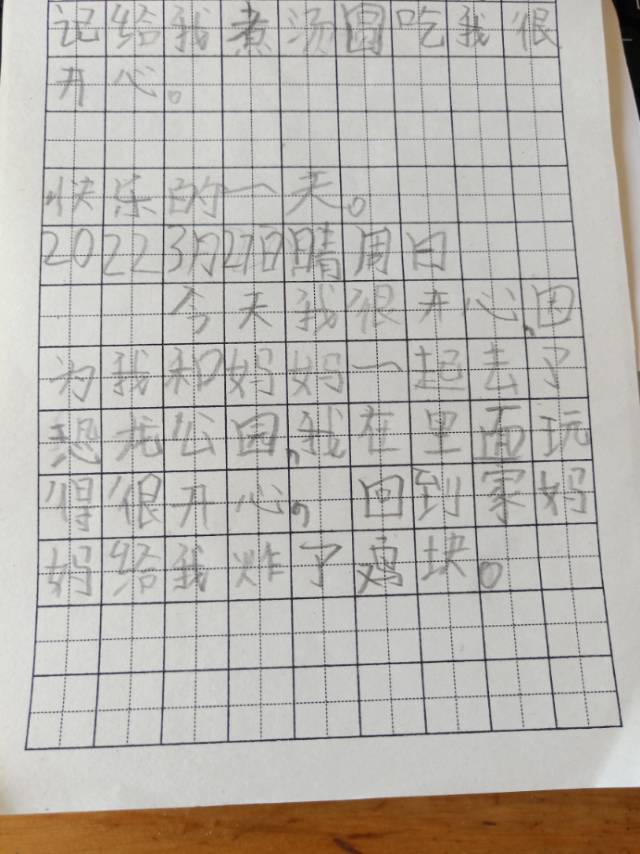 记给我煮汤圆吃我很
开心。
快乐的一天。
2022 3月27日晴周日
今天我很开心,因
为我和妈妈一起去了
恐龙公园,我在里面玩
得很开心,回到家妈
妈给我炸了鸡块。